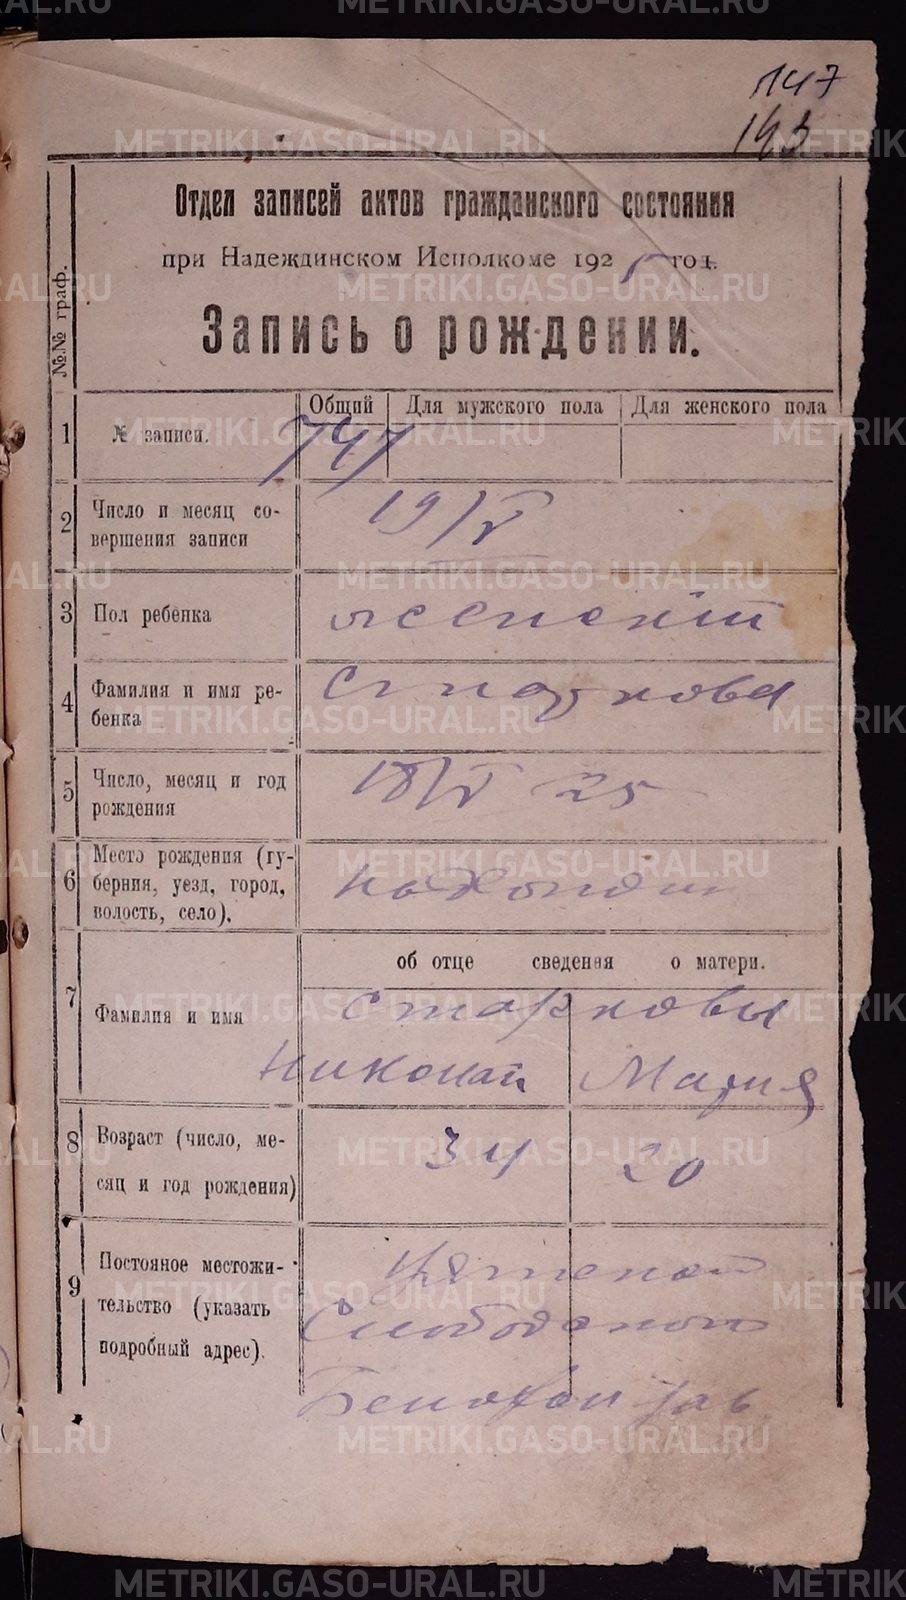 147
143
Отдел записей актов гражданского состояния
при Надеждинском Исполкоме 1925 год.
Запись о рождении.
№.№ граф.
1 № записи. Общий Для мужского пола Для женского пола
747
2 Число и месяц со-
вершения записи 19/V
3 Пол ребенка женский
4 Фамилия и имя ре-
бенка Старкова
5 Число, месяц и год
рождения 18/V 25
6 Место рождения (гу-
берния, уезд, город,
волость, село).
об отце сведения о матери.
7 Фамилия и имя Старковы
Николай Мария
8 Возраст (число, ме-
сяц и год рождения) 34 20
9 Постояное местожи-
тельство (указать
подробный адрес). Вятской
Слободской
METRIKI.GASO-URAL.RU